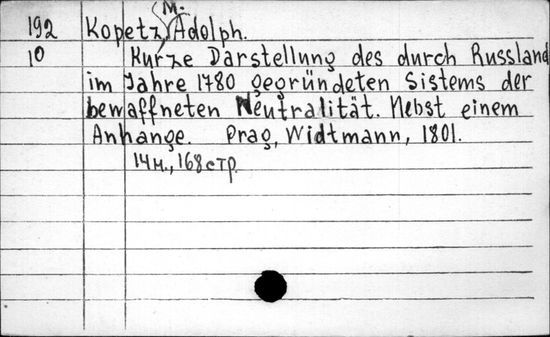 192 Kopetz, M. Adolph.
10 Kurze Darstellung des durch Russland
im Jahre 1780 gegründeten Sistems der
bewaffneten Neutralität. Nebst einem
Anhange. Prag, Widtmann, 1801.
14н., 168 стр.